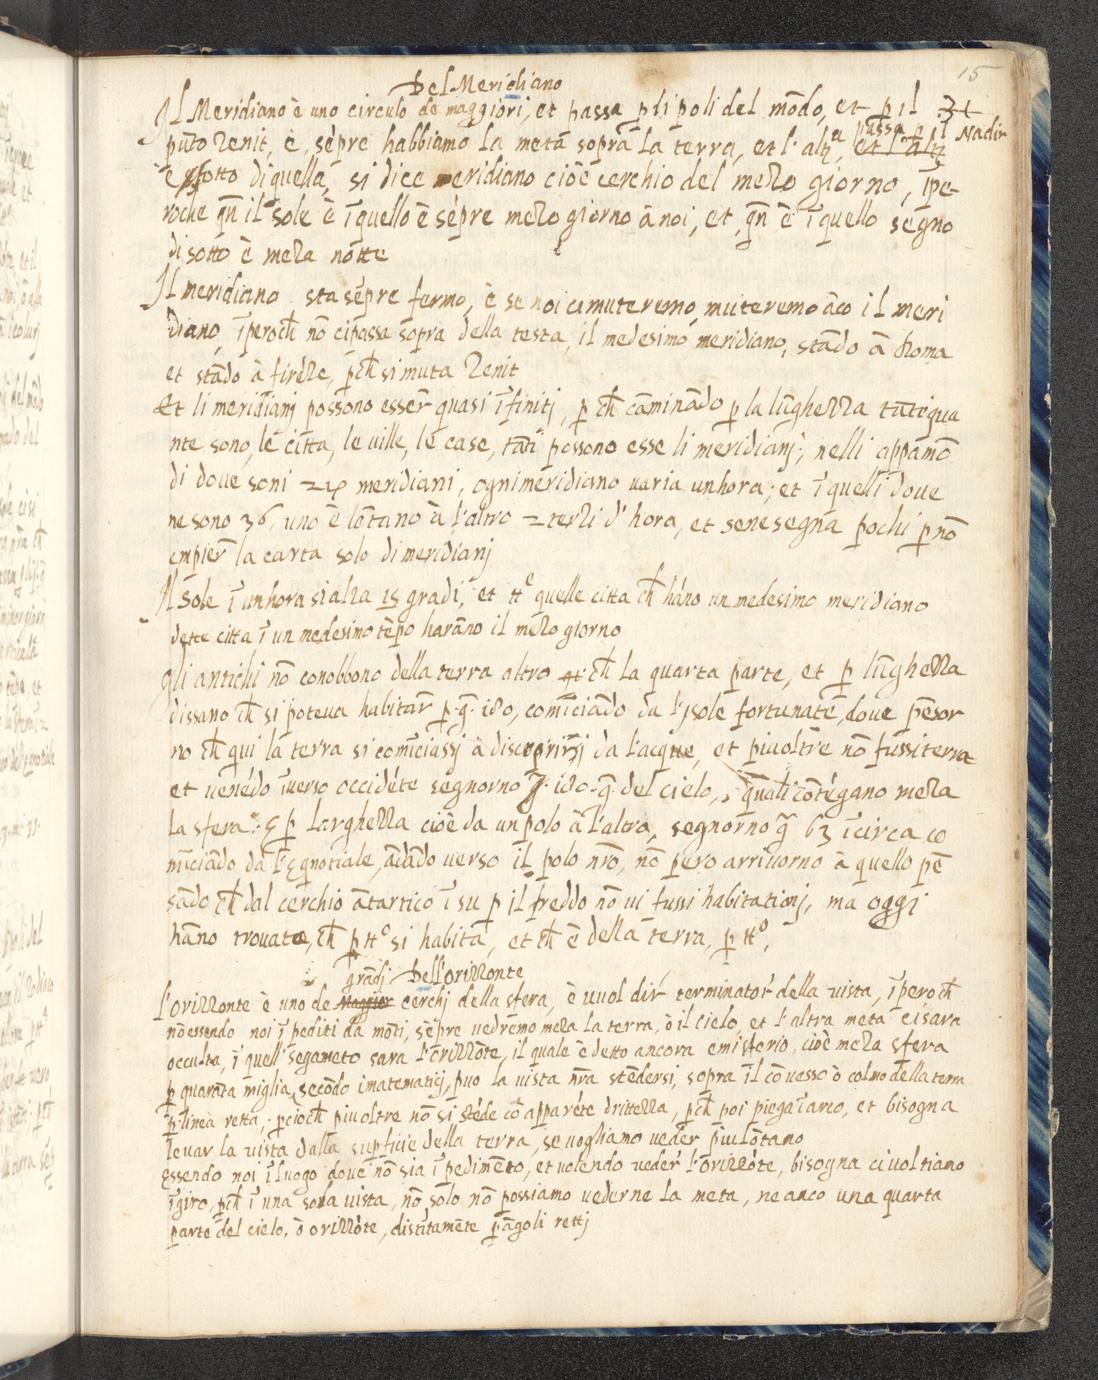 15
Del Meridiano
Il Meridiano è uno circulo de maggiori, et passa p li poli del mōdo, et p il
pūto Zenit, è, sépre habbiamo la metà sopra la terra, et l'altrª, passa p il Nadir
è sotto di quella, si dice meridiano cioè cerchio del mezo giorno, īpe-
roche qn̄ il sole è ī quello è sépre mezo giorno à noi, et qn̄ è ī quello segno
di sotto è meza notte
Il meridiano sta sépre fermo, è se noi ci muteremo, muteremo āco il meri
diano, īperoch̄ nō ci passa sopra della testa, il medesimo meridiano, stādo à Roma
et stādo à firéze, p̄ch̄ si muta Zenit
Et li meridianj possono esser̄ quasi īfinitj, p ch̄ cāminādo p la lūghezza tūtiqua
nte sono, le citta, le uille, le case, tāti possono esse li meridianj; nelli appamō
di doue soni 24 meridiani, ogni meridiano uaria unhora; et ī quelli doue
ne sono 36, uno è lōtano à l'altro 2 terzi d' hora, et se ne segna pochi p nō
empier̄ la carta solo di meridianj
Il sole ī unhora si alza 15 gradi, et ttᵉ quelle citta ch̄ hāno un medesimo meridiano
dette citta ī un medesimo tēpo harāno il mezo giorno
gli antichi nō conobbono della terra altro ch̄ la quarta parte, et p lūghezza
dissano ch̄ si poteua habitar̄ p. ḡ. 180, comīciādo da l'Jsole fortunate, doue pēsor
no ch̄ qui la terra si comīciassj à discoprirsj da l'acque, et piu oltre nō fussi terra
et uenédo īuerso occidéte segnorno 180 ḡ del cielo, quali cōtégano meza
la sfera. E p larghezza cioè da un polo à l'altro, segnorno g̃ 63 īcirca co
mīciādo da l'Eqnotiale, ādādo uerso il polo nr̄o, nō pero arriuorno à quello pē
sādo ch̄ dal cerchio ātartico ī su p il freddo nō ui fussi habitationj, ma oggi
hāno trouato, ch̄ p ttº si habita, et ch̄ è della terra, p ttº,
Dell'orizzonte
gradj
l'orizzonte è uno de Maggior cerchj della sfera, è uuol dir̄ terminator̄ della uista, īperoch̄
nō essendo noi īpediti da mōti, sēpre uedremo meza la terra, ò il cielo, et l'altra metà ci sara
occulta, ī quell' segameto sara l'orizzōte, il quale è detto ancora emisferio, cioè meza sfera
p quarāta miglia, secōdo i matematicj, puo la uista nr̄a stēdersi, sopra īl cōuesso ò colmo della terra
p linea retta, pcioch̄ piu oltre nō si stéde cō apparéte drittezza, p̄ch̄ poi piega ī arco, et bisogna
leuar la uista dalla supficie della terra, se uogliamo ueder̄ piu lōtano
Essendo noi ī luogo doue nō sia īpedimēto, et uolendo ueder̄ l'orizzōte, bisogna ci uoltiano
ī giro, p̄ch̄ ī una sola uista, nō solo nō possiamo uederne la meta, ne anco una quarta
parte del cielo, ò orizzōte, distītamēte p āgoli rettj